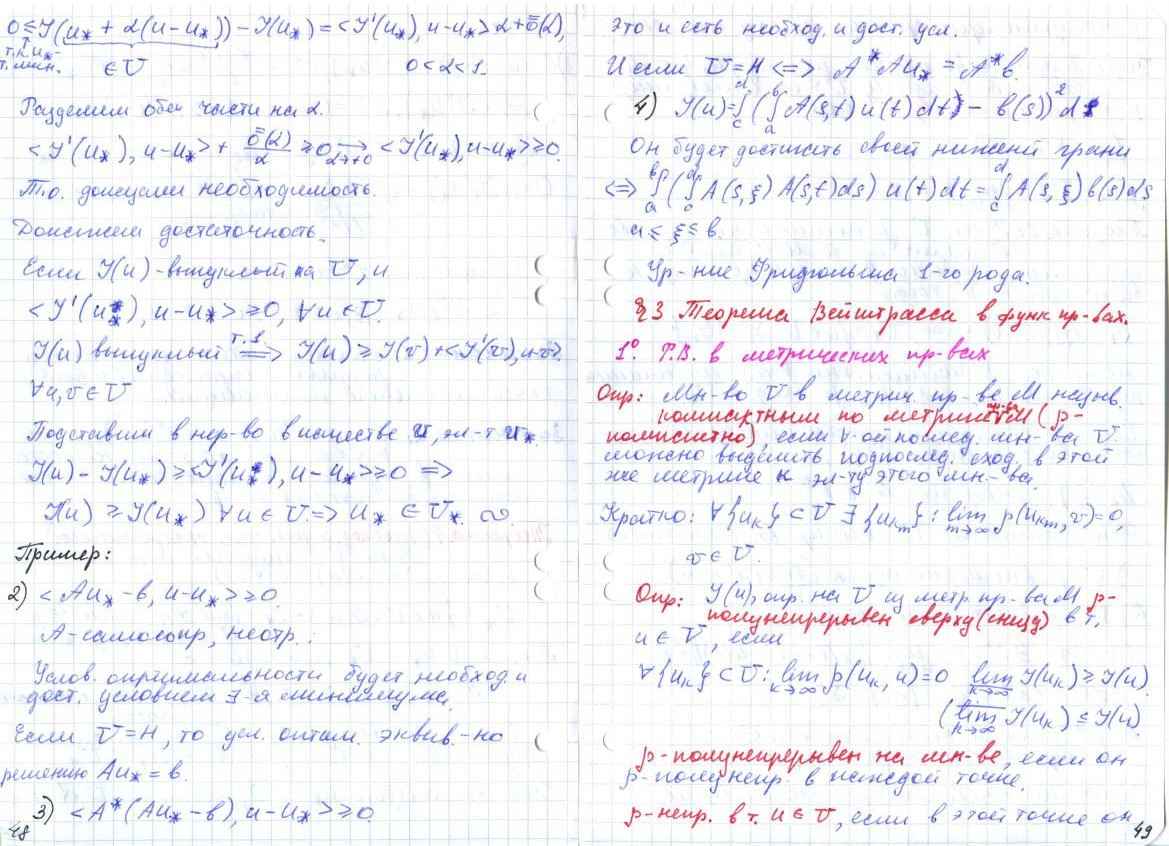 0 ≤ J(u* + α(u-u*)) - J(u*) = <J'(u*), u-u*> α + ō(α),
т.к. u* -
т. мин. ∈ U 0 < α < 1.
Разделим обе части на α.
<J'(u*), u-u*> + ō(α)/α ≥ 0 → α→+0 <J'(u*), u-u*> ≥ 0.
Т.о. доказали необходимость.
Докажем достаточность.
Если J(u) - выпуклый на U, и
<J'(u*), u-u*> ≥ 0, ∀u∈U.
J(u) выпуклый т.1 ⟹ J(u) ≥ J(v) + <J'(v), u-v>,
∀u,v∈U
Подставим в нер-во в качестве v, эл-т u*
J(u) - J(u*) ≥ <J'(u*), u-u*> ≥ 0 ⟹
J(u) ≥ J(u*) ∀u∈U ⟹ u* ∈ U*.
Пример:
2) <Au* - в, u-u*> ≥ 0.
А-самосопр, неотр.
Услов. оптимальности будет необход. и
дост. условием ∃-я минимума.
Если U=H, то усл. оптим. эквив.-но
решению Au* = в.
3) <A*(Au* - в), u-u*> ≥ 0.
48
Это и есть необход. и дост. усл.
И если U=H <=> A*Au* = A*в.
4) J(u) = ∫_c^d (∫_a^b A(s,t) u(t) dt - в(s))² ds
Он будет достигать своей нижней грани
<=> ∫_a^b (∫_c^d A(s,ξ) A(s,t) ds) u(t) dt = ∫_c^d A(s,ξ) в(s) ds
a ≤ ξ ≤ в.
Ур-ние Фридгольма 1-го рода.
§3 Теорема Вейштрасса в функ пр-вах.
1° Т.В. в метрических пр-вах
Опр: Мн-во U в метрич пр-ве М назыв.
компактным по метрике пр-ва М (ρ-
компактно), если ∀-ой послед. мн-ва U
можно выделить подпослед. сход. в этой
же метрике к эл-ту этого мн-ва.
Кратко: ∀{uₖ} ⊂ U ∃ {uₖₘ} : lim m→∞ ρ(uₖₘ, v) = 0,
v∈U.
Опр: J(u), опр. на U из метр. пр-ва М ρ-
полунепрерывен сверху (снизу) в т.
u∈U, если
∀{uₖ} ⊂ U : lim k→∞ ρ(uₖ, u) = 0 lim k→∞ J(uₖ) ≥ J(u).
(lim k→∞ J(uₖ) ≤ J(u)
ρ-полунепрерывен на мн-ве, если он
ρ-полунепр. в каждой точке.
ρ-непр. в т. u∈U, если в этой точке он
49